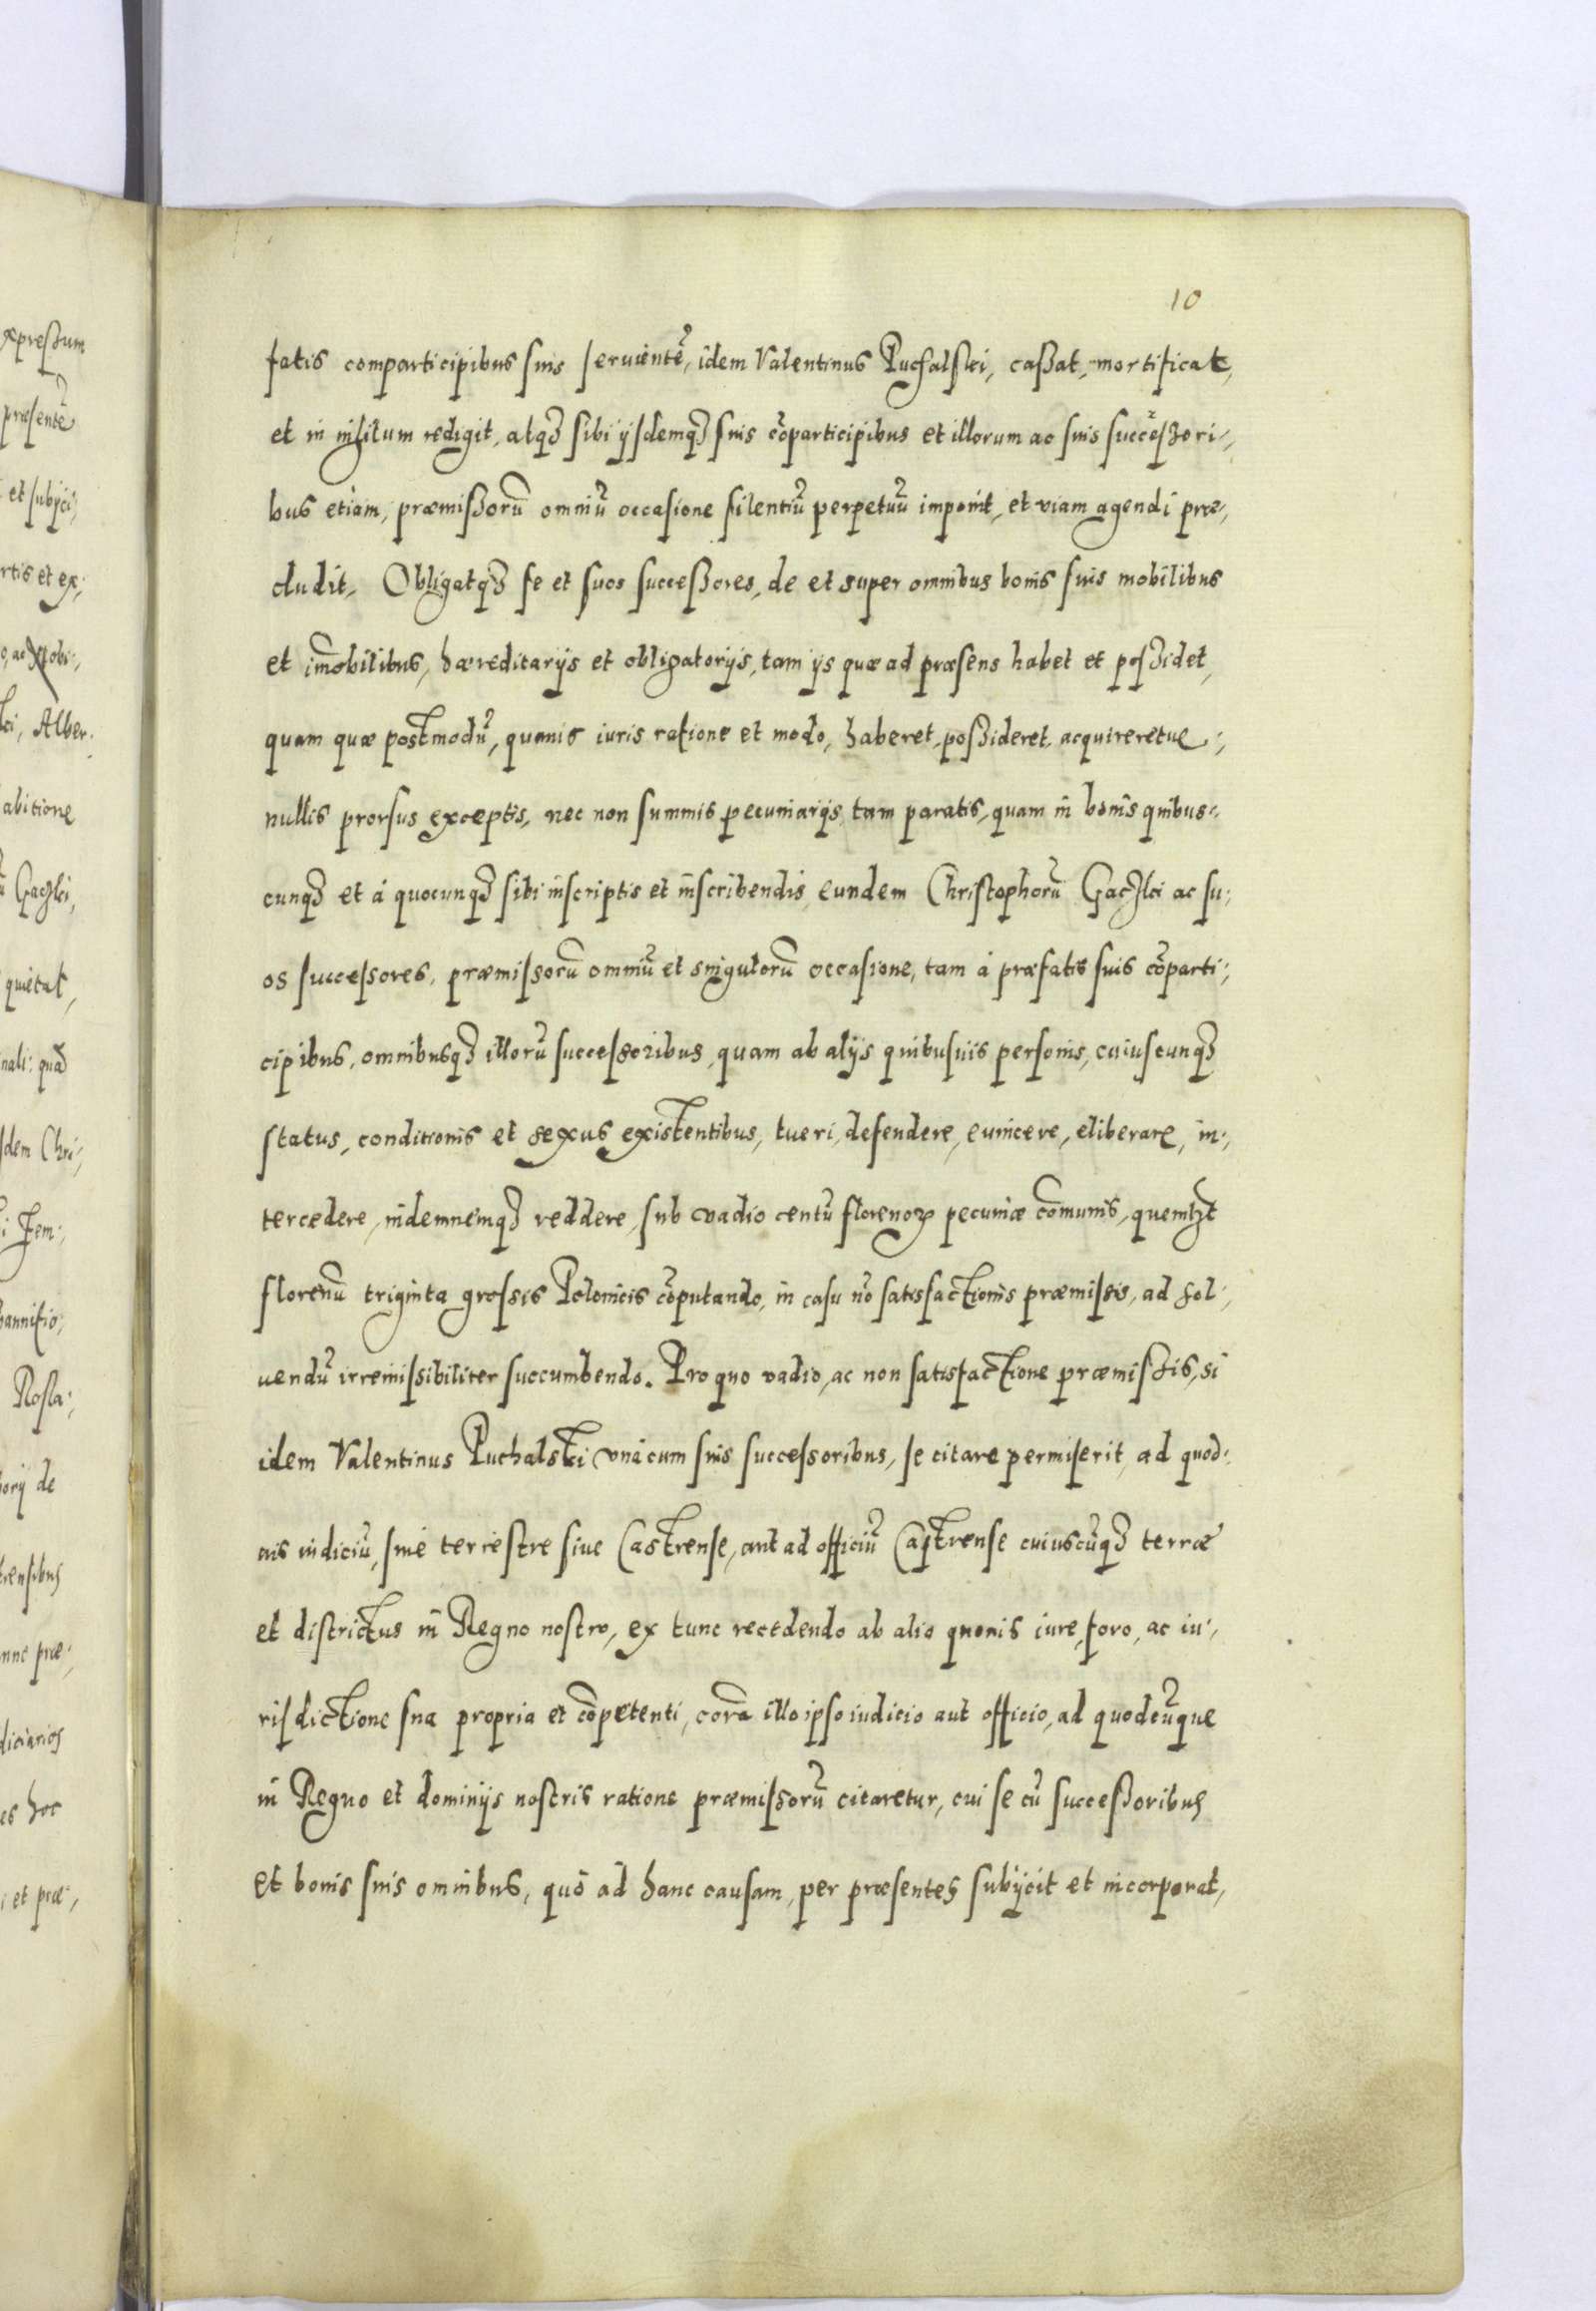 10
fatis comparticipibus suis seruientē, idem Valentinus Puchalski, cassat, mortificat,
et in nihilum redigit, atq3 sibi ijsdemq3 suis cōparticipibus et illorum ac suis successori-,
bus etiam, præmissorū omniū occasione silentiū perpetuū imponit, et viam agendi præ-,
cludit. Obligatq3 se et suos successores, de et super omnibus bonis suis mobilibus
et im̄obilibus, hæreditarijs et obligatorijs, tam ijs quæ ad præsens habet et possidet,
quam quæ postmodū, quouis iuris ratione et modo, haberet, possideret, acquireretue:,
nullis prorsus exceptis, nec non summis pecuniarijs, tam paratis, quam in bonis quibus-,
cunq3 et à quocunq3 sibi inscriptis et inscribendis, eundem Christophorū Gaczki ac su:
os successores, præmissorū omniū et singulorū occasione, tam à præfatis suis cōparti:,
cipibus, omnibusq3 illorū successoribus, quam ab alijs quibusuis personis, cuiuscunq3
status, conditionis et sexus existentibus, tueri, defendere, euincere, eliberare, in:,
tercedere, indemnemq3 reddere, sub vadio centū florenoꝝ pecuniæ cōmunis, quemlꝫt
florenū triginta grossis Polonicis cōputando, in casu nō satisfactionis præmissis, ad sol:,
uendū irremissibiliter succumbendo. Pro quo vadio, ac non satisfactione præmissis, si
idem Valentinus Puchalski vnà cum suis successoribus, se citare permiserit, ad quod-:
uis iudiciū, siue terrestre siue Castrense, aut ad officiū Castrense cuiuscūq3 terræ
et districtus in Regno nostro, ex tunc recedendo ab alio quouis iure, foro, ac iu:,
risdictione sua propria et cōpetenti, corā illo ipso iudicio aut officio, ad quodcūque
in Regno et dominijs nostris ratione præmissorū citaretur, cui se cū successoribus
et bonis suis omnibus, quò ad hanc causam, per præsentes subijcit et incorporat,